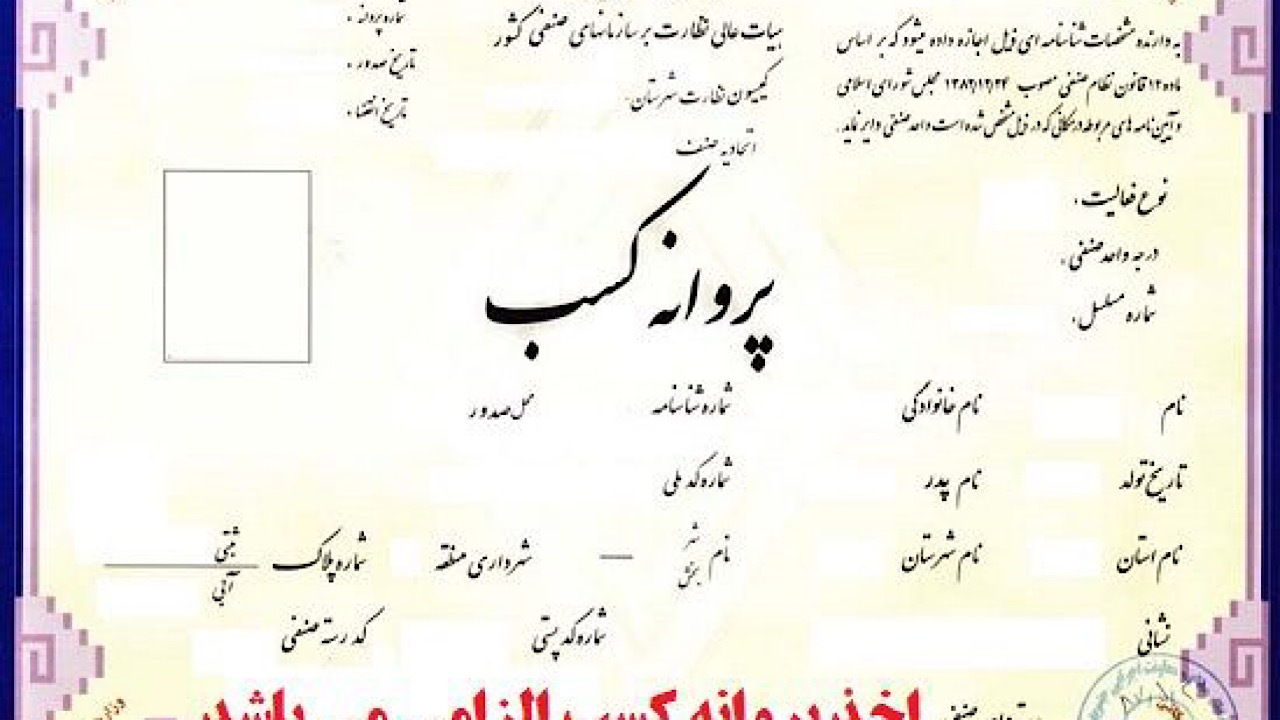 به دارنده مشخصات شناسنامه ای ذیل اجازه داده میشود که بر اساس
ماده ۱۲ قانون نظام صنفی مصوب ۱۳۸۲/۱۲/۲۴ مجلس شورای اسلامی
و آیین نامه های مربوطه در مکانی که در ذیل مشخص شده است واحد صنفی دایر نماید.
هیات عالی نظارت بر سازمانهای صنفی کشور
کمیسیون نظارت شهرستان
اتحادیه صنف
شماره پروانه .
تاریخ صدور .
تاریخ انقضاء .
نوع فعالیت .
درجه واحد صنفی .
شماره مسلسل .
پروانه کسب
نام نام خانوادگی شماره شناسنامه محل صدور
تاریخ تولد نام پدر شماره کد ملی
نام استان نام شهرستان نام شهر بخش — شهرداری منطقه شماره پلاک ثبتی آبی
نشانی شماره کد پستی کد رسته صنفی
اخذ پروانه کسب الزامی می باشد